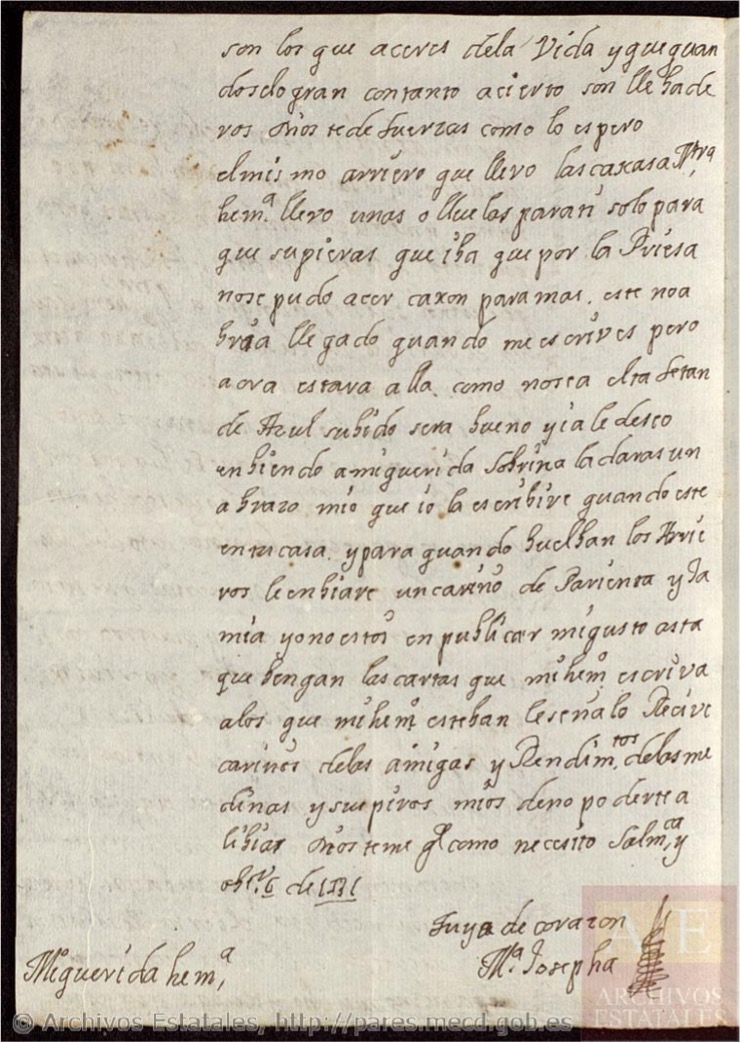 son los que aceres dela Vida y que quan
dosolo gran con tanto acierto son lle bade
ros Dios te de fuerzas como lo espero
el mismo arriero que llevo las caxas a Ntra
hem.ª llevo unas o lluelas para ti solo para
que supieras que iba que por la Priesa
nose pudo acer caxon para mas. este noa
bria llegado quando me escrives pero
aora estara alla. como nosea el tafetan
de Azul subido sera bueno y ia le deseo
enbiendo a mi querida Sobrina la daras un
abrazo mio que io la escribire quando este
en tu casa. y para quando buelban los Arrie
ros le enbiare un cariño de Parienta y Tia
mia yo no estoi en publicar mi gusto asta
que bengan las cartas que mi hem.º escriva
alos que mi hem.º esteban le señalo Recive
cariños delas amigas y Rendim.tos delas me
dinas y suspiros mios deno poderte a
libiar Dios te me g.e como necesito Salm.ca y
obre. 6 de 1771
Tuya de corazon
M.ª Josepha
Mi querida hem.ª
A E
ARCHIVOS
ESTATALES
© Archivos Estatales, http://pares.mecd.gob.es